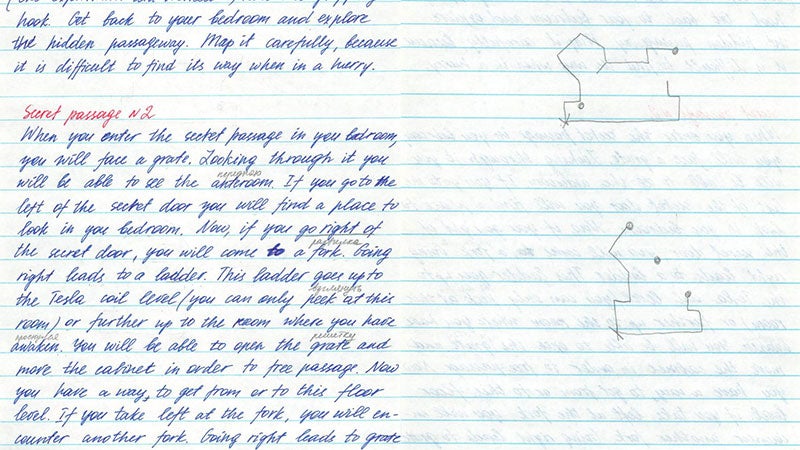 hook. Get back to your bedroom and explore
the hidden passageway. Map it carefully, because
it is difficult to find its way when in a hurry.
Secret passage N2
When you enter the secret passage in you bedroom,
you will face a grate. Looking through it you
переднюю
will be able to see the anteroom. If you go to the
left of the secret door you will find a place to
look in you bedroom. Now, if you go right of
the secret door, you will come to a fork. Going
right leads to a ladder. This ladder goes up to
the Tesla coil level (you can only peek at this
room) or further up to the room where you have
решетку
awaken. You will be able to open the grate and
move the cabinet in order to free passage. Now
you have a way, to get from or to this floor
level. If you take left at the fork, you will en-
counter another fork. Going right leads to grate